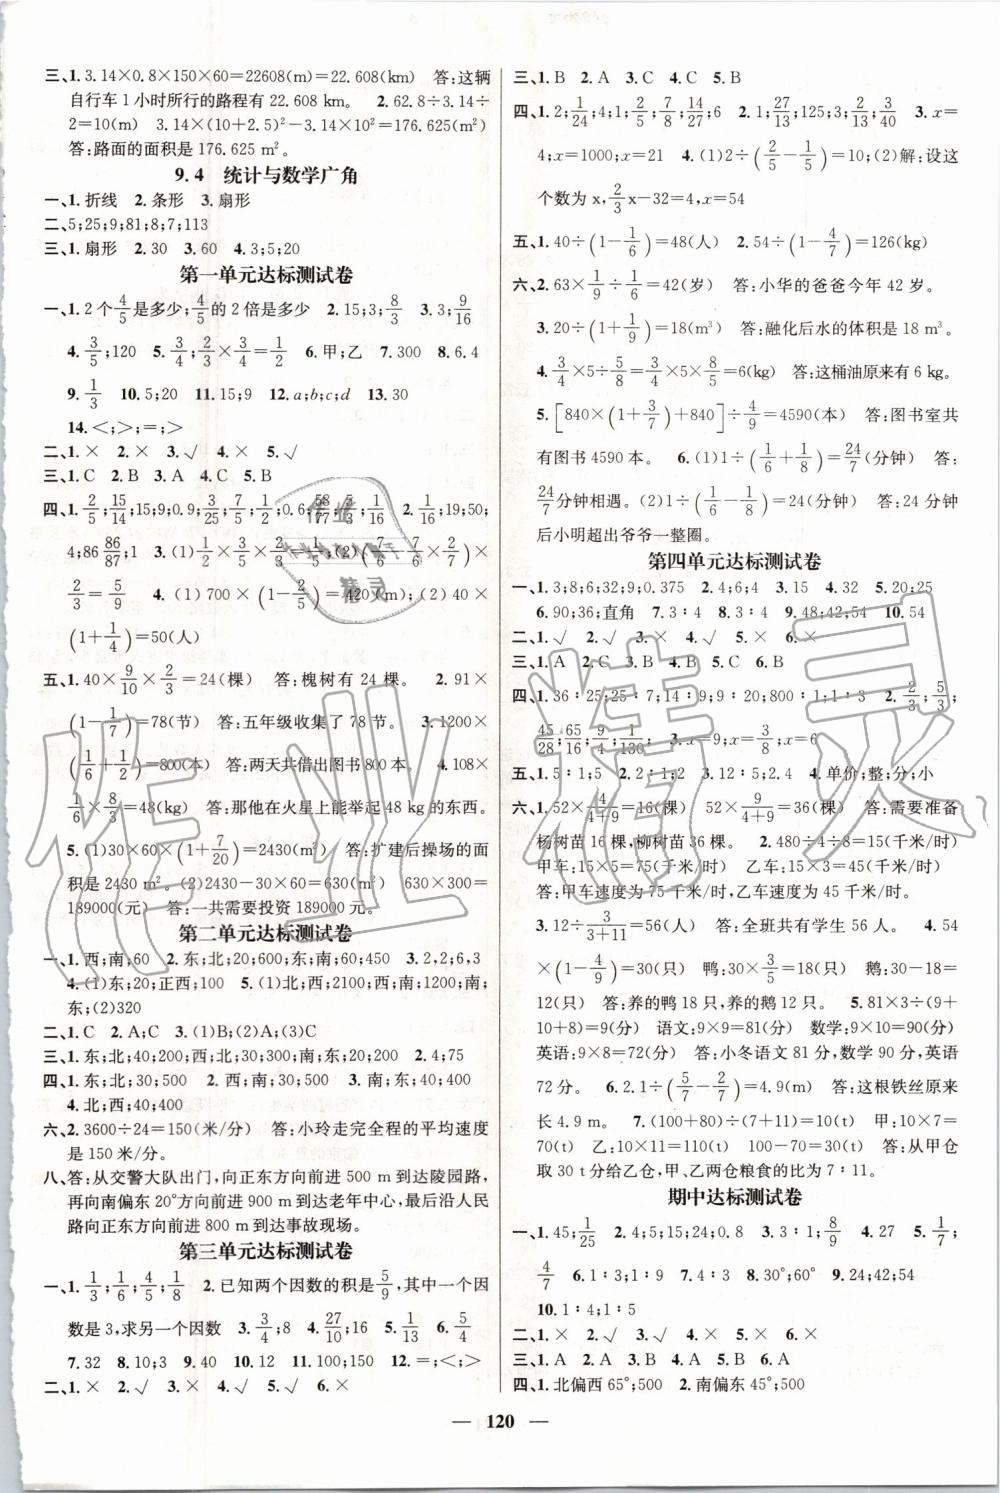 三、1. 3.14×0.8×150×60=22608(m)=22.608(km) 答:这辆
自行车1小时所行的路程有22.608 km。 2. 62.8÷3.14÷
2=10(m) 3.14×(10+2.5)²-3.14×10²=176.625(m²)
答:路面的面积是176.625 m²。
9.4 统计与数学广角
一、1. 折线 2. 条形 3. 扇形
二、5;25;9;81;8;7;113
三、1. 扇形 2. 30 3. 60 4. 3;5;20
第一单元达标测试卷
一、1. 2个4/5是多少;4/5的2倍是多少 2. 15;3;8/3 3. 3;9/16
4. 3/5;120 5. 3/4;2/3×3/4=1/2 6. 甲;乙 7. 300 8. 6.4
9. 1/3 10. 5;20 11. 15;9 12. a;b;c;d 13. 30
14. <;>;=;>
二、1. × 2. × 3. √ 4. × 5. √
三、1. C 2. B 3. A 4. C 5. B
四、1. 2/5;15/14;15;9;3/25;7/5;1/2;0.6;58/77;5/3;1/16 2. 1/16;19;50;
4;86 86/87 3. (1)
2/3=5/9 4. (1)700×(1-2/5)=420(m);(2)40×
(1+1/4)=50(人)
五、1. 40×9/10×2/3=24(棵) 答:槐树有24棵。 2. 91×
(1-1/7)=78(节) 答:五年级收集了78节。 3. 1200×
(1/6+1/2)=800(本) 答:两天共借出图书800本。 4. 108×
1/6×8/3=48(kg) 答:那他在火星上能举起48 kg的东西。
5. (1)30×60×(1+7/20)=2430(m²) 答:扩建后操场的面
积是2430 m²。 (2)2430-30×60=630(m²) 630×300=
189000(元) 答:一共需要投资189000元。
第二单元达标测试卷
一、1. 西;南;60 2. 东;北;20;600;东;南;60;450 3. 2,2;6,3
4. (1)东;20;正西;100 5. (1)北;西;2100;西;南;1200;南;
东;(2)320
二、1. C 2. A;C 3. (1)B;(2)A;(3)C
三、1. 东;北;40;200;西;北;30;300;东;南;20;200 2. 4;75
四、1. 东;北;30;500 2. 西;南;30;500 3. 东;南;40;400
4. 北;西;40;400
六、2. 3600÷24=150(米/分) 答:小玲走完全程的平均速度
是150米/分。
八、答:从交警大队出门,向正东方向前进500 m到达陵园路,
再向南偏东20°方向前进900 m到达老年中心,最后沿人民
路向正东方向前进800 m到达事故现场。
第三单元达标测试卷
一、1. 1/3;1/6;4/5;1/8 2. 已知两个因数的积是5/9,其中一个因
数是3,求另一个因数 3. 3/4;8 4. 27/10;16 5. 1/13 6. 5/4
7. 32 8. 10 9. 40 10. 12 11. 100;150 12. =;<;>;<
二、1. × 2. √ 3. × 4. √ 5. √ 6. ×
三、1. B 2. A 3. C 4. C 5. B
四、1. 2;1/24;4;1;5/8;2/7;7/8;14/27;6 2. 1;27/13;125;2/13;3/40 3. x=
4;x=1000;x=21 4. (1)2÷(2/5-1/5)=10;(2)解:设这
个数为x,2/3x-32=4,x=54
五、1. 40÷(1-1/6)=48(人) 2. 54÷(1-4/7)=126(kg)
六、1. 63×1/9÷1/6=42(岁) 答:小华的爸爸今年42岁。
3. 20÷(1+1/9)=18(m³) 答:融化后水的体积是18 m³。
4. 3/4×5÷5/8=3/4×5×8/5=6(kg) 答:这桶油原来有6 kg。
5. [840×(1+3/7)+840]÷4/9=4590(本) 答:图书室共
有图书4590本。 6. (1)1÷(1/6+1/8)=24/7(分钟) 答:
24/7分钟相遇。(2)1÷(1/6-1/8)=24(分钟) 答:24分钟
后小明超出爷爷一整圈。
第四单元达标测试卷
一、1. 3;8;6;32;9;375 2. 4;6;4 3. 15 4. 32 5. 20;25
6. 90;36;直角 7. 3∶4 8. 3∶4 9. 48;42;54 10. 54
二、1. √ 2. × 3. × 4. √ 5. × 6. ×
三、1. A 2. C 3. B 4. B 5. C 6. B
四、1. 36∶25;25∶7;14∶9;9∶20;800∶1;1∶3 2. 2/3;5/3;
45/28;65/16;9/4;1/130 3. x=9;x=3/8;x=6
五、1. 5∶1;5 2. 2∶1;2 3. 1200∶1;1200 4. 单价;整;分;小
六、1. 52×4/(4+9)=16(棵) 52×9/(4+9)=36(棵) 答:需要准备
杨树苗16棵,柳树苗36棵。 2. 480÷4÷8=15(千米/时)
甲车:15×5=75(千米/时) 乙车:15×3=45(千米/时)
答:甲车速度为75千米/时,乙车速度为45千米/时。
3. 12÷3/(3+11)=56(人) 答:全班共有学生56人。 4. 54
×(1-4/9)=30(只) 鸭:30×3/5=18(只) 鹅:30-18=
12(只) 答:养的鸭18只,养的鹅12只。 5. 81×3÷(9+
10+8)=9(分) 语文:9×9=81(分) 数学:9×10=90(分)
英语:9×8=72(分) 答:小冬语文81分,数学90分,英语
72分。 6. 2.1÷(5/7-2/7)=4.9(m) 答:这根铁丝原来
长4.9 m。 7. (100+80)÷(7+11)=10(t) 甲:10×7=
70(t) 乙:10×11=110(t) 100-70=30(t) 答:从甲仓
取30 t分给乙仓,甲、乙两仓粮食的比为7∶11。
期中达标测试卷
一、1. 45;1/25 2. 4;5;15;24;0.8 3. 3∶1;8/9 4. 27 5. 1/7;
4/7 6. 1∶3;1∶9 7. 4∶3 8. 30°;60° 9. 24;42;54
10. 1∶4;1∶5
二、1. × 2. √ 3. √ 4. × 5. × 6. √
三、1. A 2. C 3. C 4. A 5. B 6. A
四、1. 北偏西65°;500 2. 南偏东45°;500
— 120 —
作业精灵